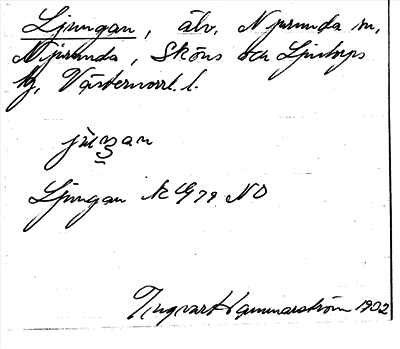 Ljungan, älv, Njurunda sn,
Njurunda, Sköns och Ljustorps
tg, Västernorrl. l.
Ljungan
Ingvar Hammarström 1902